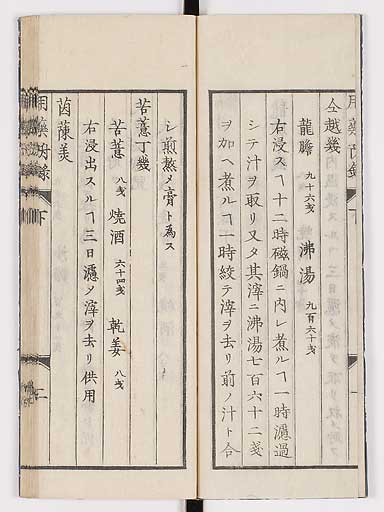 仝越幾
龍膽 九十六戔 沸湯 九百六十戔
右浸スヿ十二時磁鍋ニ内レ煮ルヿ一時濾過
シテ汁ヲ取リ又タ其滓ニ沸湯七百六十二戔
ヲ加ヘ煮ルヿ一時絞テ滓ヲ去リ前ノ汁ト合
シ煎熬メ膏ト為ス
苦薏丁幾
苦薏 八戔 焼酒 六十四戔 乾姜 八戔
右浸出スルヿ三日濾メ滓ヲ去リ供用
茵蔯羙
下
二